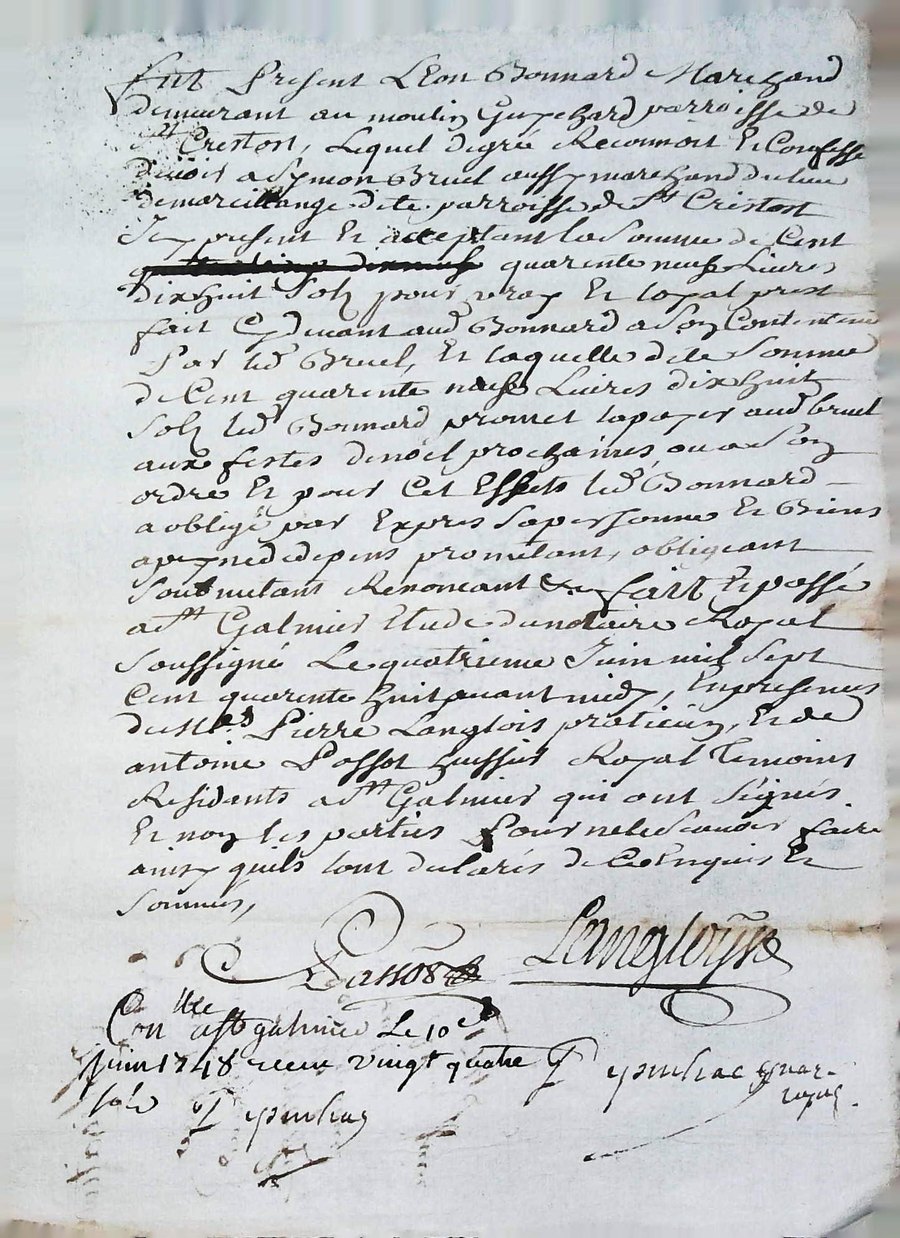 fut Present Leon Bonnard Marchand
demeurant au moulin Guychard parroisse de
St Cristost, Lequel de gré Reconnoit Et Confesse
devoir a Symon Bruel aussy marchand du lieu
de marcillange dite parroisse de St Cristost
Icy present Et acceptant la Somme de Cent
quarente neuf Livres
dix huit Solz pour vray Et loyal prest
fait Cy devant aud Bonnard a Son Contentemt
Par led Bruel, Et laquelle dite Somme
de Cent quarente neuf Livres dix huit
Solz led Bonnard promet la payer aud bruel
aux festes de noël prochaines, ou a Son
ordre Et pour Cet Effets led Bonnard
a obligé par Exprès Sa personne Et Biens
a peyne de depens prometant, obligeant
Soubmetant Renonceant &a fait Et passé
a St Galmier Etude du notaire Royal
Soussigné Le quatrieme Juin mil Sept
Cent quarente huit avant midy, En presences
de Me Pierre Langlois praticien, Et de
antoine Passot huissier Royal Temoins
Residents a St Galmier qui ont Signés
Et non les parties Pour ne le Scavoir faire
ainsy quils l'ont declarés de Ce Enquis Et
Sommés,
Passot Langloys
Conlle a St galmier Le 10e
Juin 1748 receu vingt quatre
solz